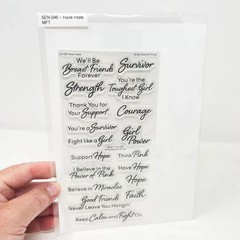 Have Hope
MFT
We'll Be
Breast Friends
Forever
Survivor
Strength
You're the
Toughest Girl
I Know
Thank You for
Your Support
Courage
You're a Survivor
Fight like a Girl
Girl
Power
Support Hope
Think Pink
I Believe in the
Power of Pink
Have Hope
Hope
Believe in Miracles
Faith
Good Friends
Never Leave You Hangin'
Keep Calm and Fight On